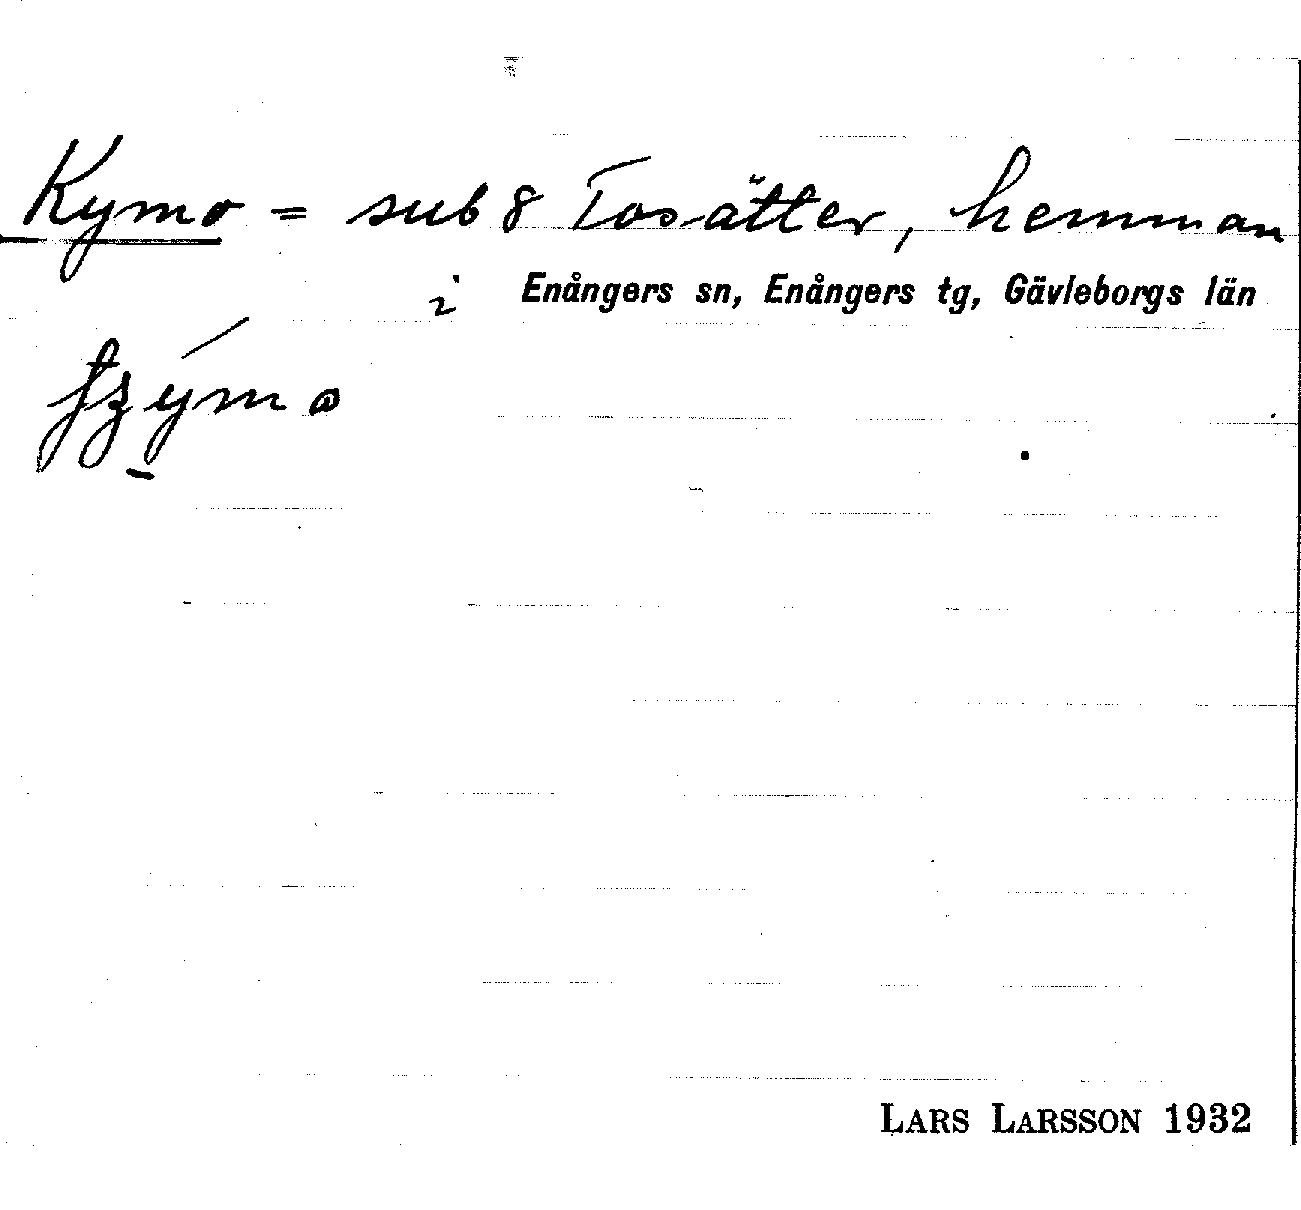 Kymo = sub 8 Tosätter, hemman
i Enångers sn, Enångers tg, Gävleborgs län
LARS LARSSON 1932